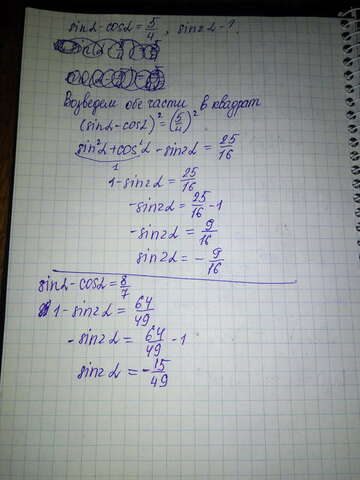 sinα - cosα = 5/4, sin2α - ?
Возведем обе части в квадрат
(sinα - cosα)² = (5/4)²
sin²α + cos²α - sin2α = 25/16
1
1 - sin2α = 25/16
-sin2α = 25/16 - 1
-sin2α = 9/16
sin2α = - 9/16
sinα - cosα = 8/7
1 - sin2α = 64/49
- sin2α = 64/49 - 1
sin2α = - 15/49